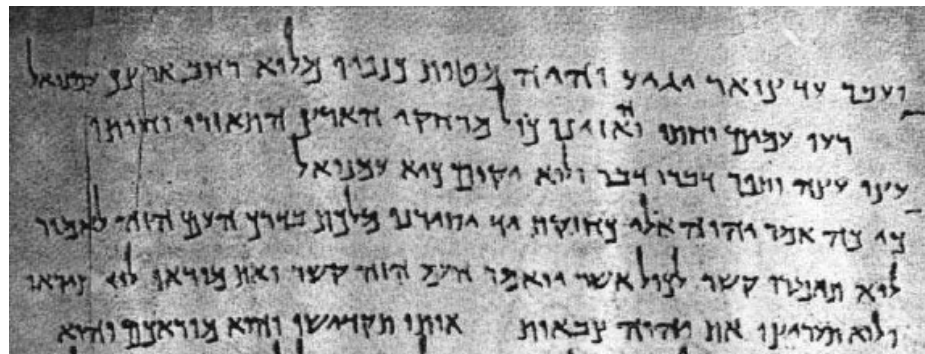 ועבר עד צואר יגיע והיה מטות כנפיו מלוא רחב ארצך עמנואל
רעו עמים וחתו והאזינו כול מרחקי הארץ התאזרו וחותו
עצו עצה ותפר דברו דבר ולוא יקום כיא עמנואל
כי כוה אמר יהוה אלי כחזקת יד יסירנו מלכת בדרך העם הזה לאמור
לוא תאמרון קשר לכול אשר יואמר העם הזה קשר ואת מוראו לוא תיראו
ולוא תעריצו את יהוה צבאות אותו תקדישו והוא מוראכם והוא